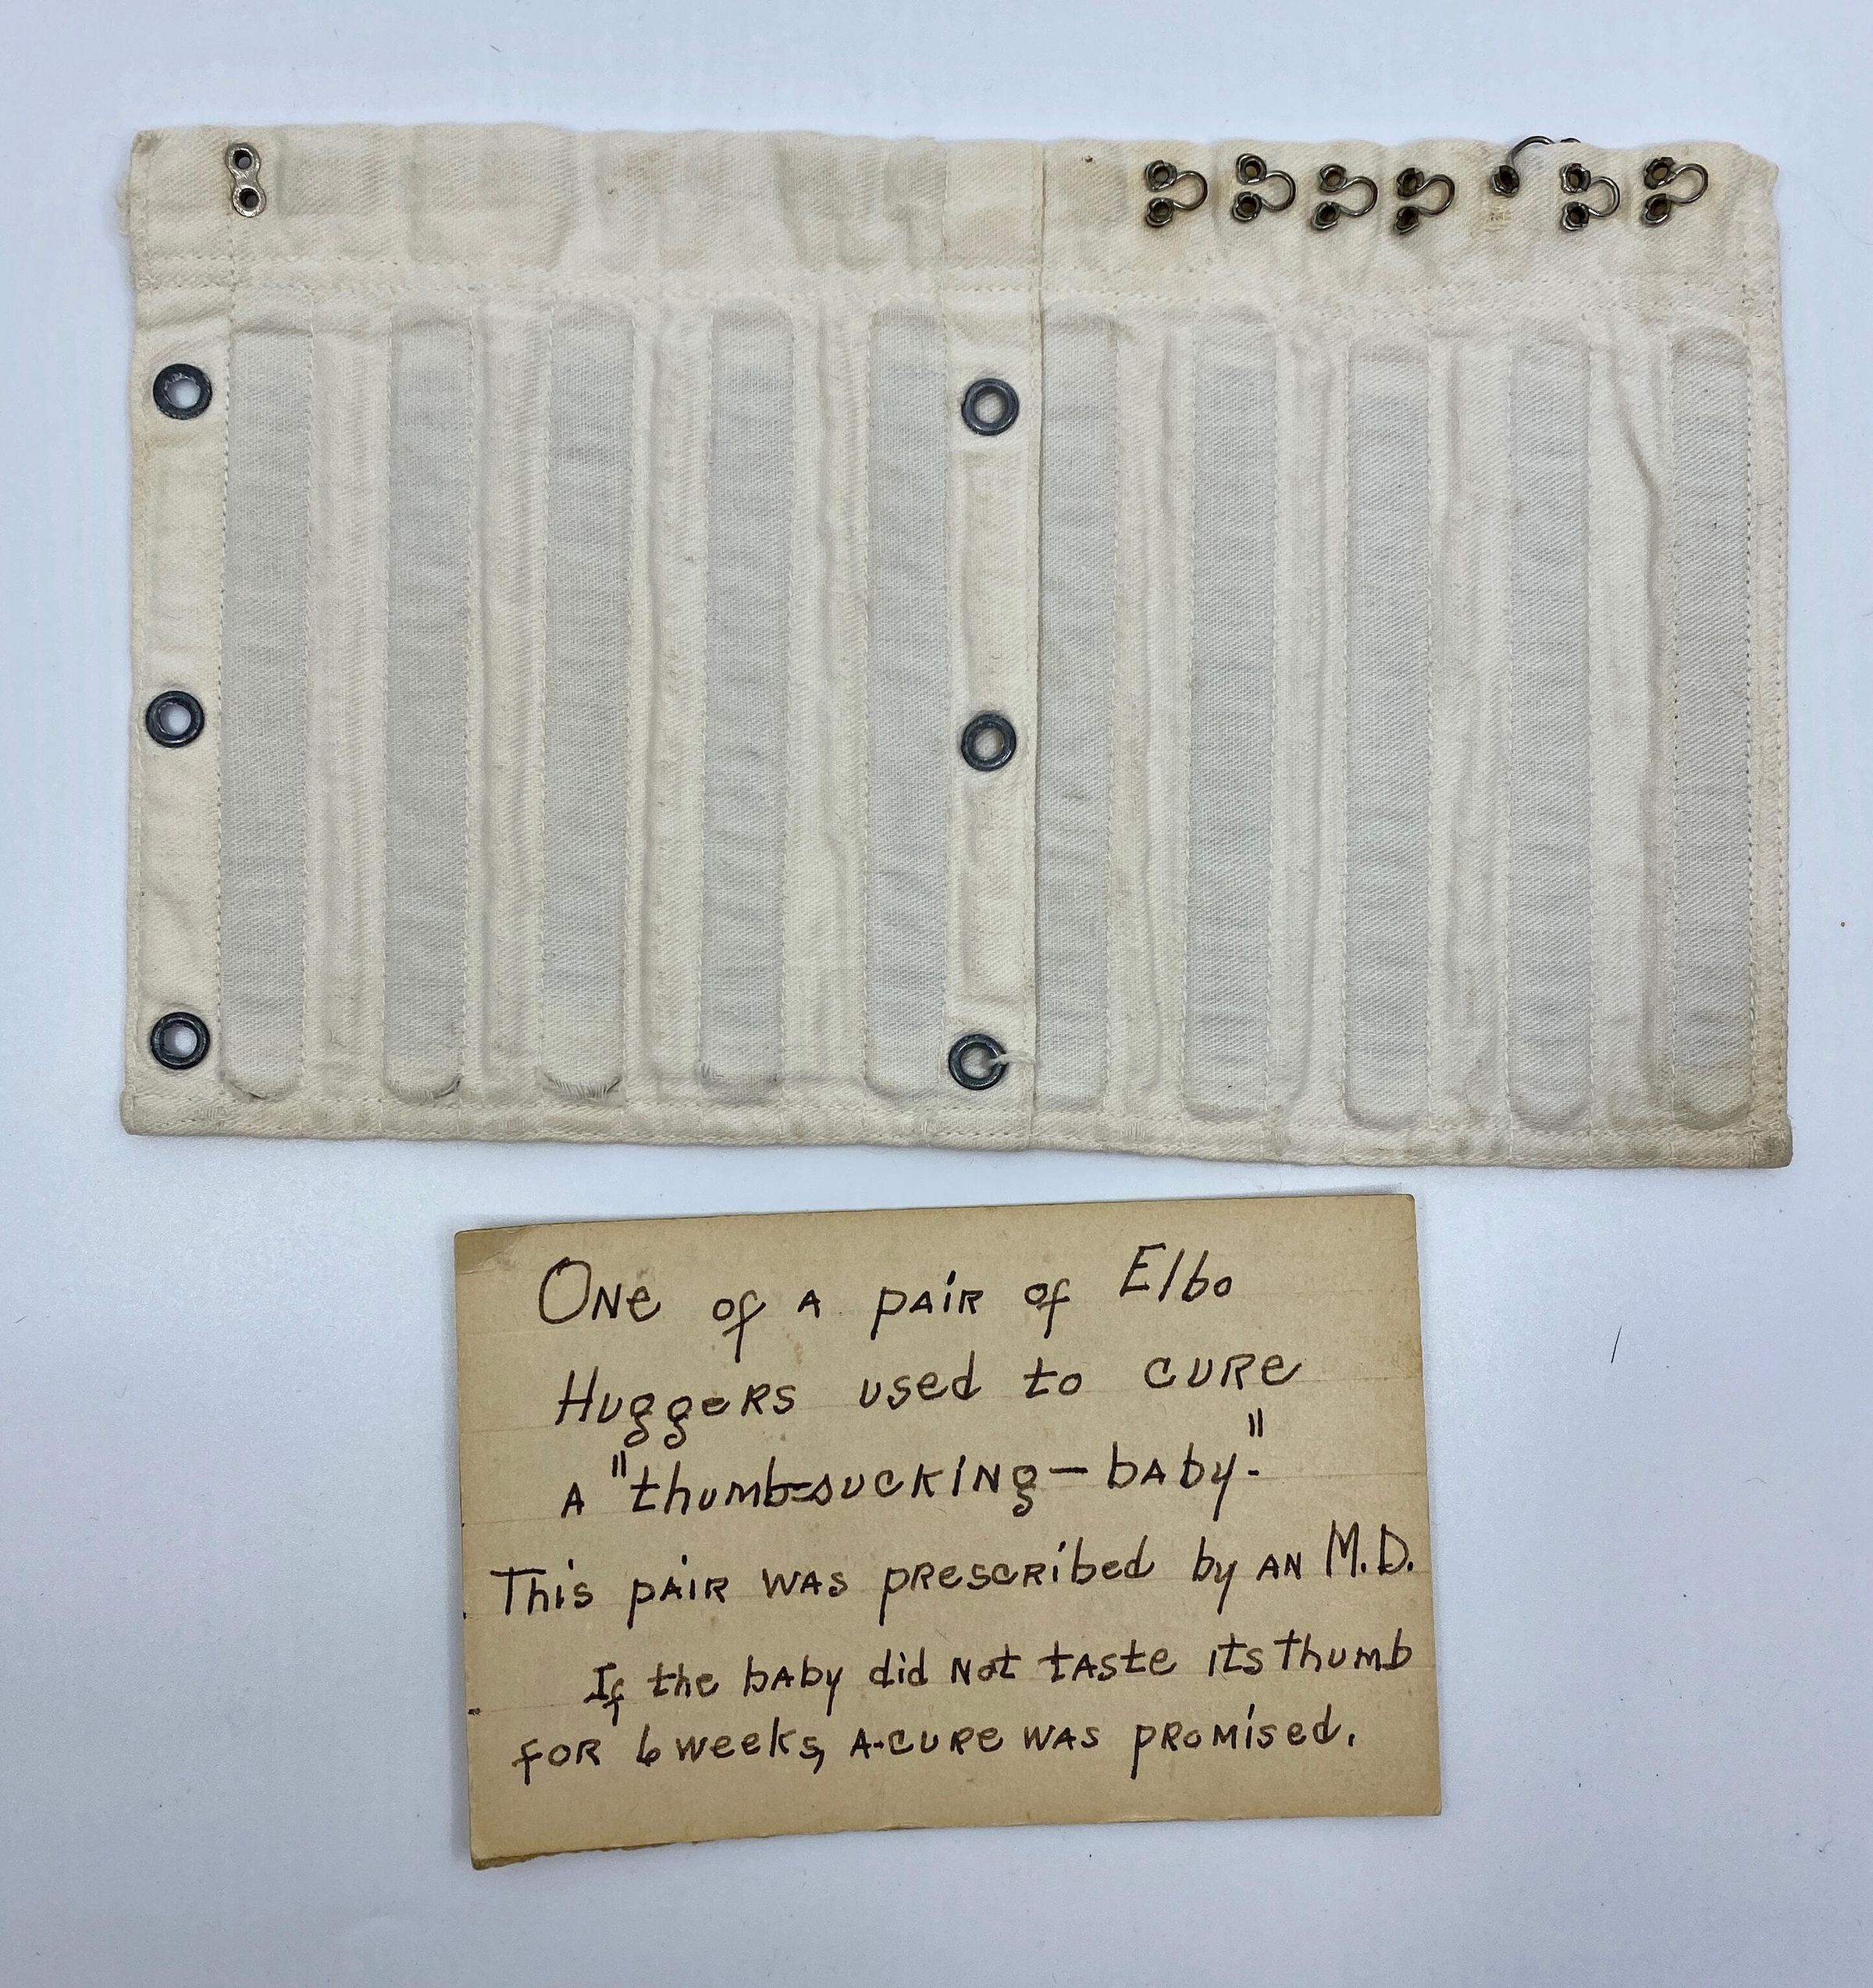 One of a pair of Elbo
Huggers used to cure
a "thumb-sucking-baby."
This pair was prescribed by an M.D.
If the baby did not taste its thumb
for 6 weeks, a-cure was promised.